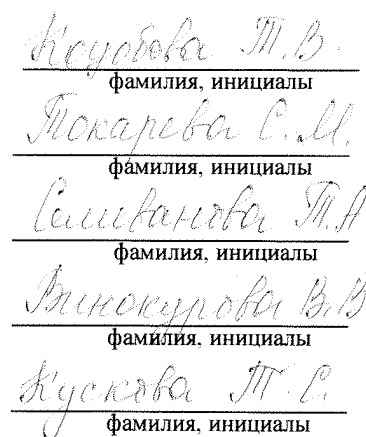 Т.В.
фамилия, инициалы
Токарева С.М.
фамилия, инициалы
Селиванова Т.А
фамилия, инициалы
Винокурова В.В
фамилия, инициалы
Кускова Т.С.
фамилия, инициалы